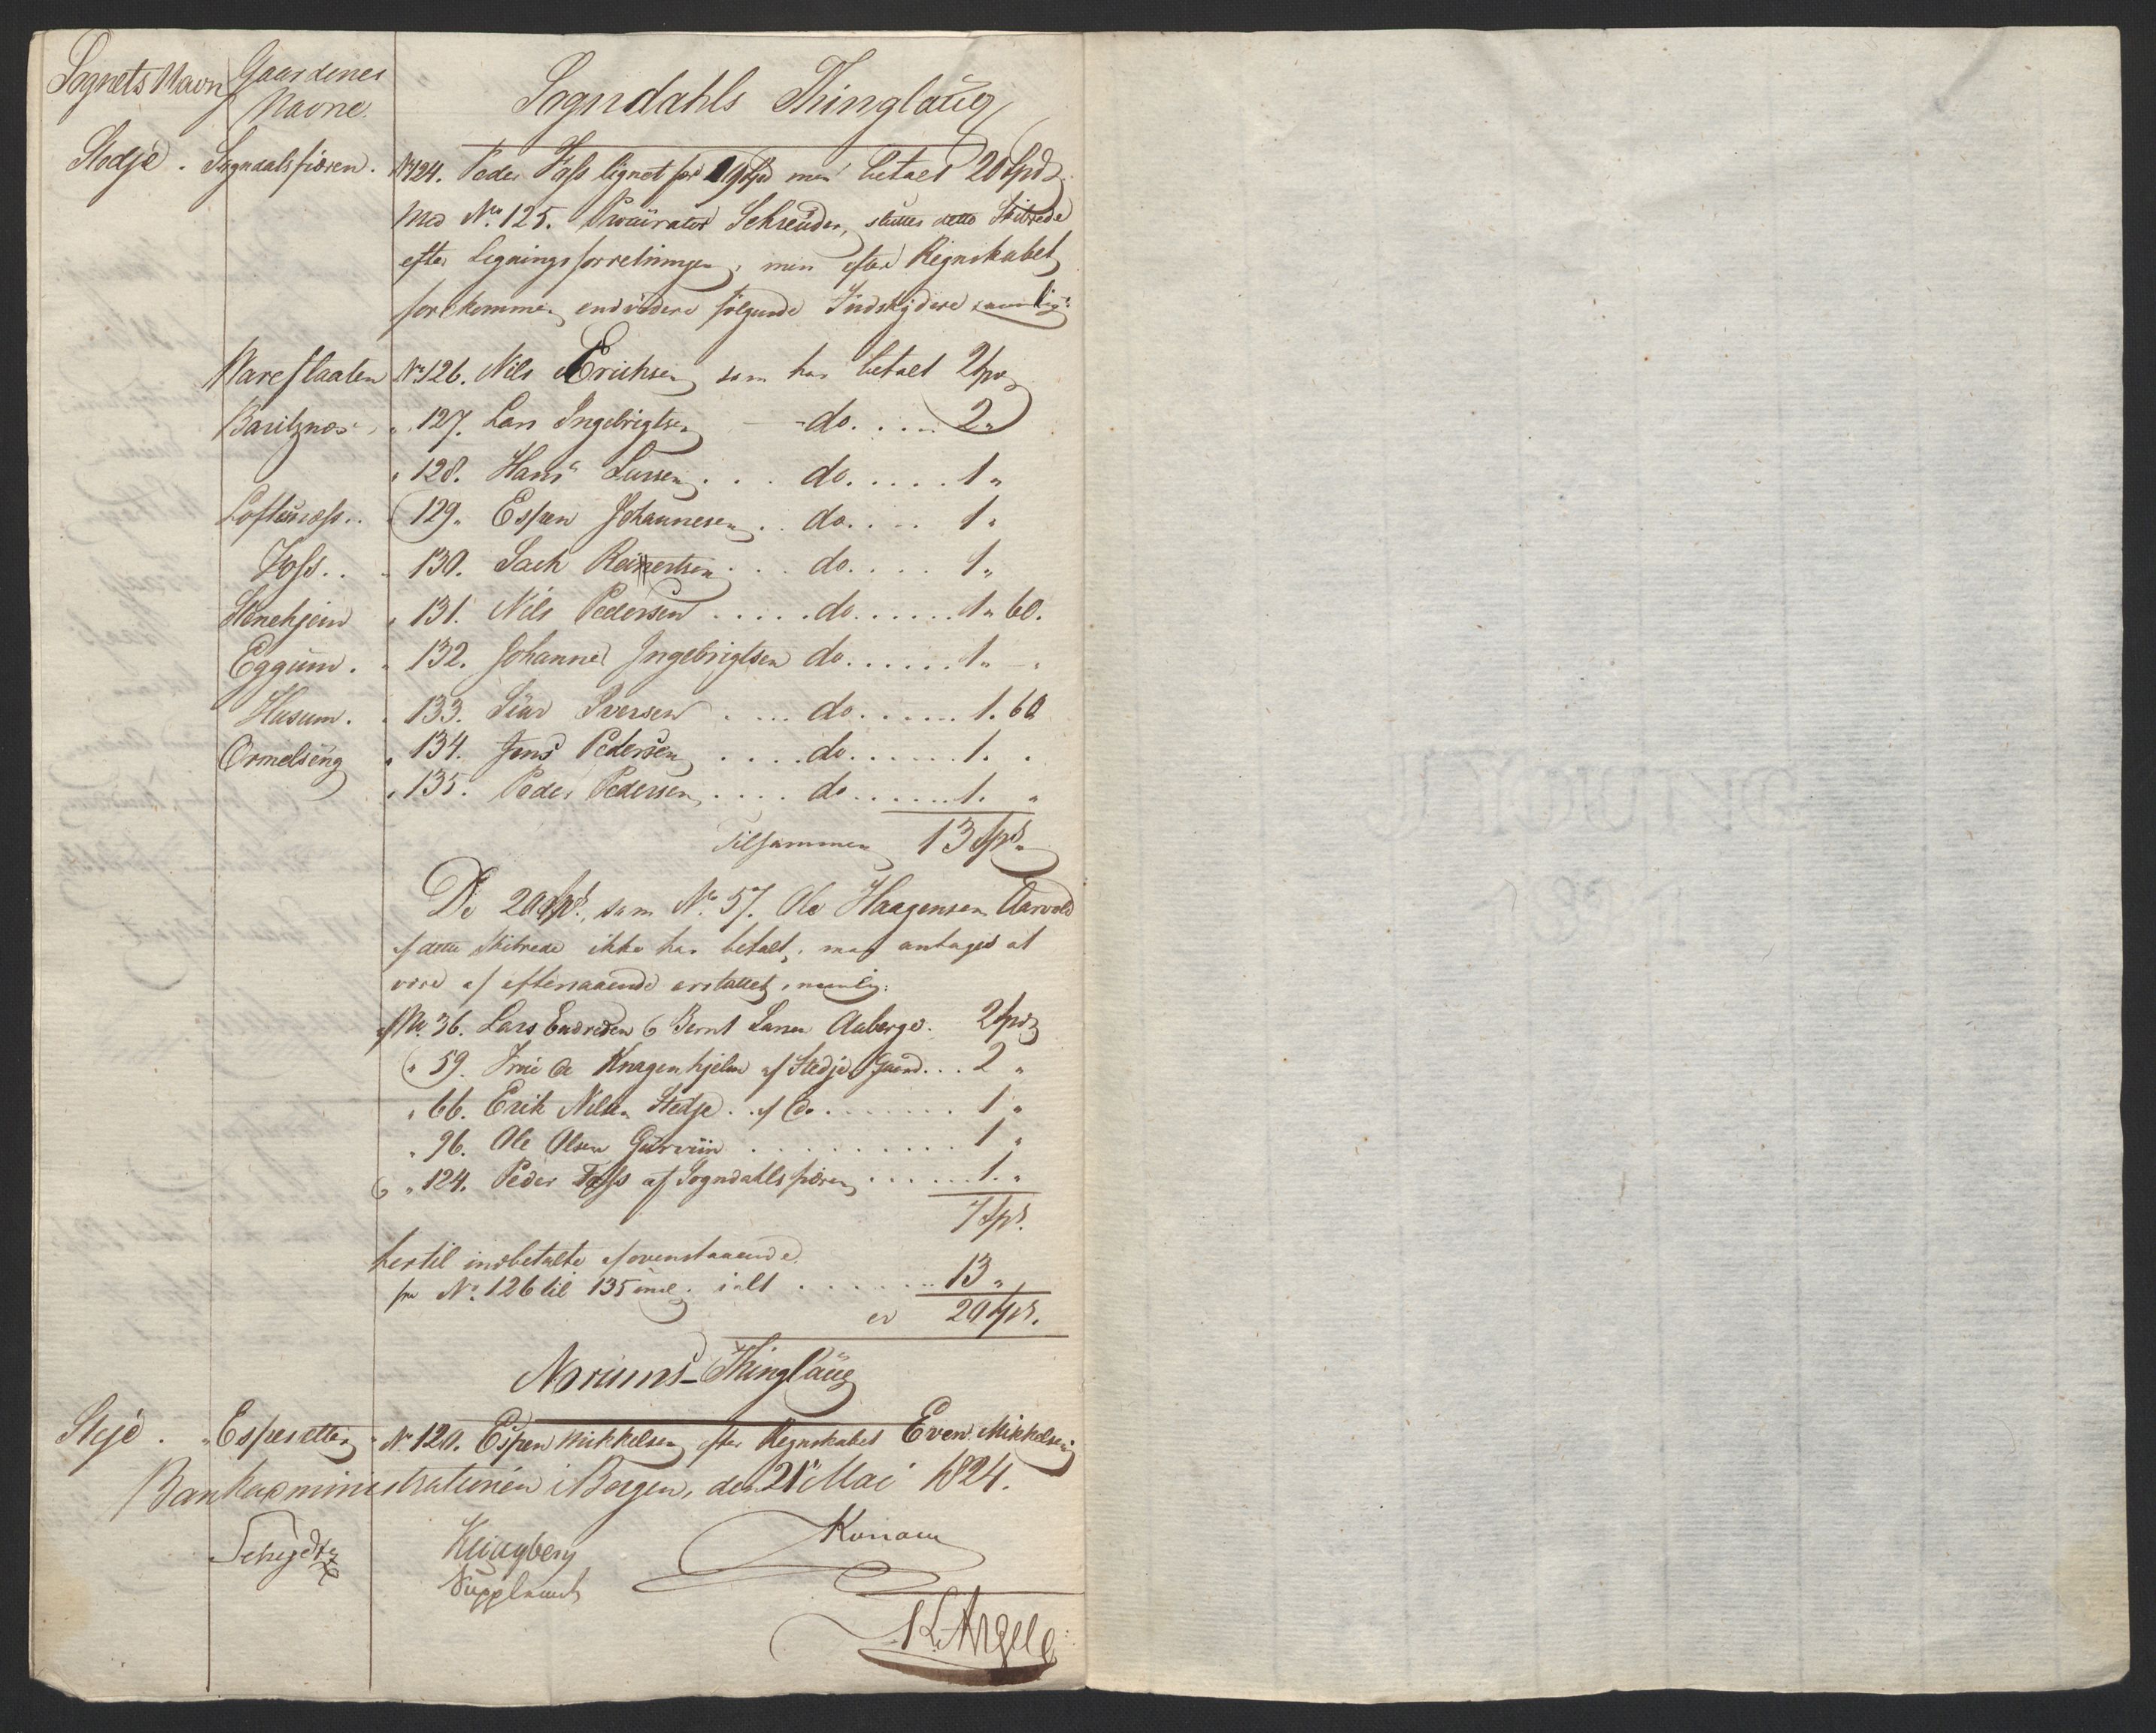 Sognets Navn
Gaardenes Navne.
Sogndahls Thinglaug
Stedje. Sogndalsfiøren. No 124. Peder Foss lignet for 19 Spd men betalt 20 Spd
Med No. 125. Procurator Schreuder, sluttes dette Skibrede
efter Ligningsforretningen, men efter Regnskabet
forekommer endvidere følgende Indskydere, nemlig:
Nareflaaten No 126. Nils Erichsen som har betalt 2 Spd
Baritznæs „ 127. Lars Ingebrigtsen - - do. .... 2 „
„ 128. Hans Larsen . . . do. .... 1 „
Loftesnæss .. „ 129. Espen Johannesen .. do. ... 1 „
Foss .. „ 130. Zach Reinertsen . . . do. ... 1 „
Stenehjem „ 131. Nils Pedersen ..... do. ..... 1 „ 60.
Eggum. „ 132. Johannes Ingebrigtsen do. ..... 1 „ - „
Husum. „ 133. Siur Iversen .... do. ..... 1. 60
Ormelseng „ 134. Jens Pedersen .... do. ..... 1. .
„ 135. Peder Pedersen .... do. ..... 1. „
Tilsammen 13 Spd „
De 20 Spd., som No. 57. Ole Haagensen Aarvold
af dette Skibrede ikke har betalt, maa antages at
være af efternævnte erstattet, nemlig:
af No. 36. Lars Endresen & Bernt Larsen Aaberge. 2 Spd
„ 59. Frue de Knagenhjelm af Stedje Gaard... 2 „
„ 66. Erik Nilsen Stedje .. af do ....... 1 „
„ 96. Ole Olsen Gurvin .......... 1 „
& „ 124. Peder Foss af Sogndahlsfiøren ...... 1. „
7 Spd.
hertil indbetalte af ovenstaaende
fra No. 126 til 135 incl. i alt ....... 13 „
er 20 Spd.
Norums Thinglaug
Stejé. „ Espesetten „ No 120. Espen Mikkelsen efter Regnskabet Even Mikkelsen
Bankadministrationen i Bergen, den 21de Mai 1824.
Schydtz Klingberg Konow
Suppleant